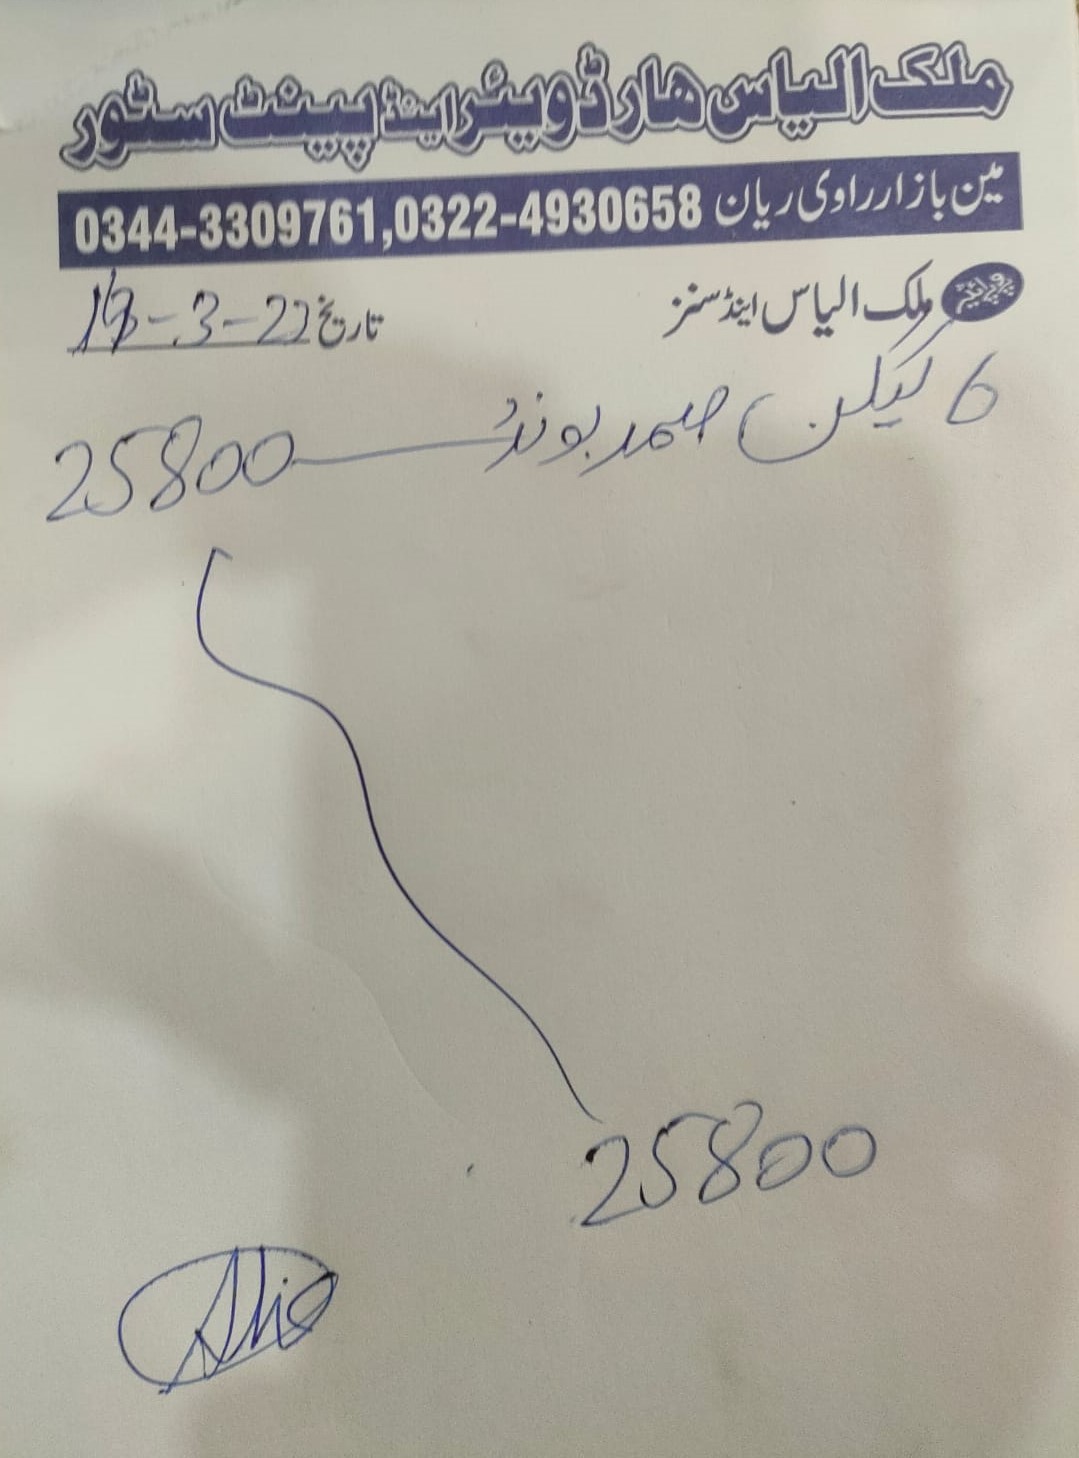 ملک الیاس ھارڈویئر اینڈ پینٹ سٹور
مین بازار راوی ریان 0344-3309761,0322-4930658
پروپرائیٹر ملک الیاس اینڈ سنز
تاریخ -3-22
6 گیلن صمد بونڈ 25800
25800